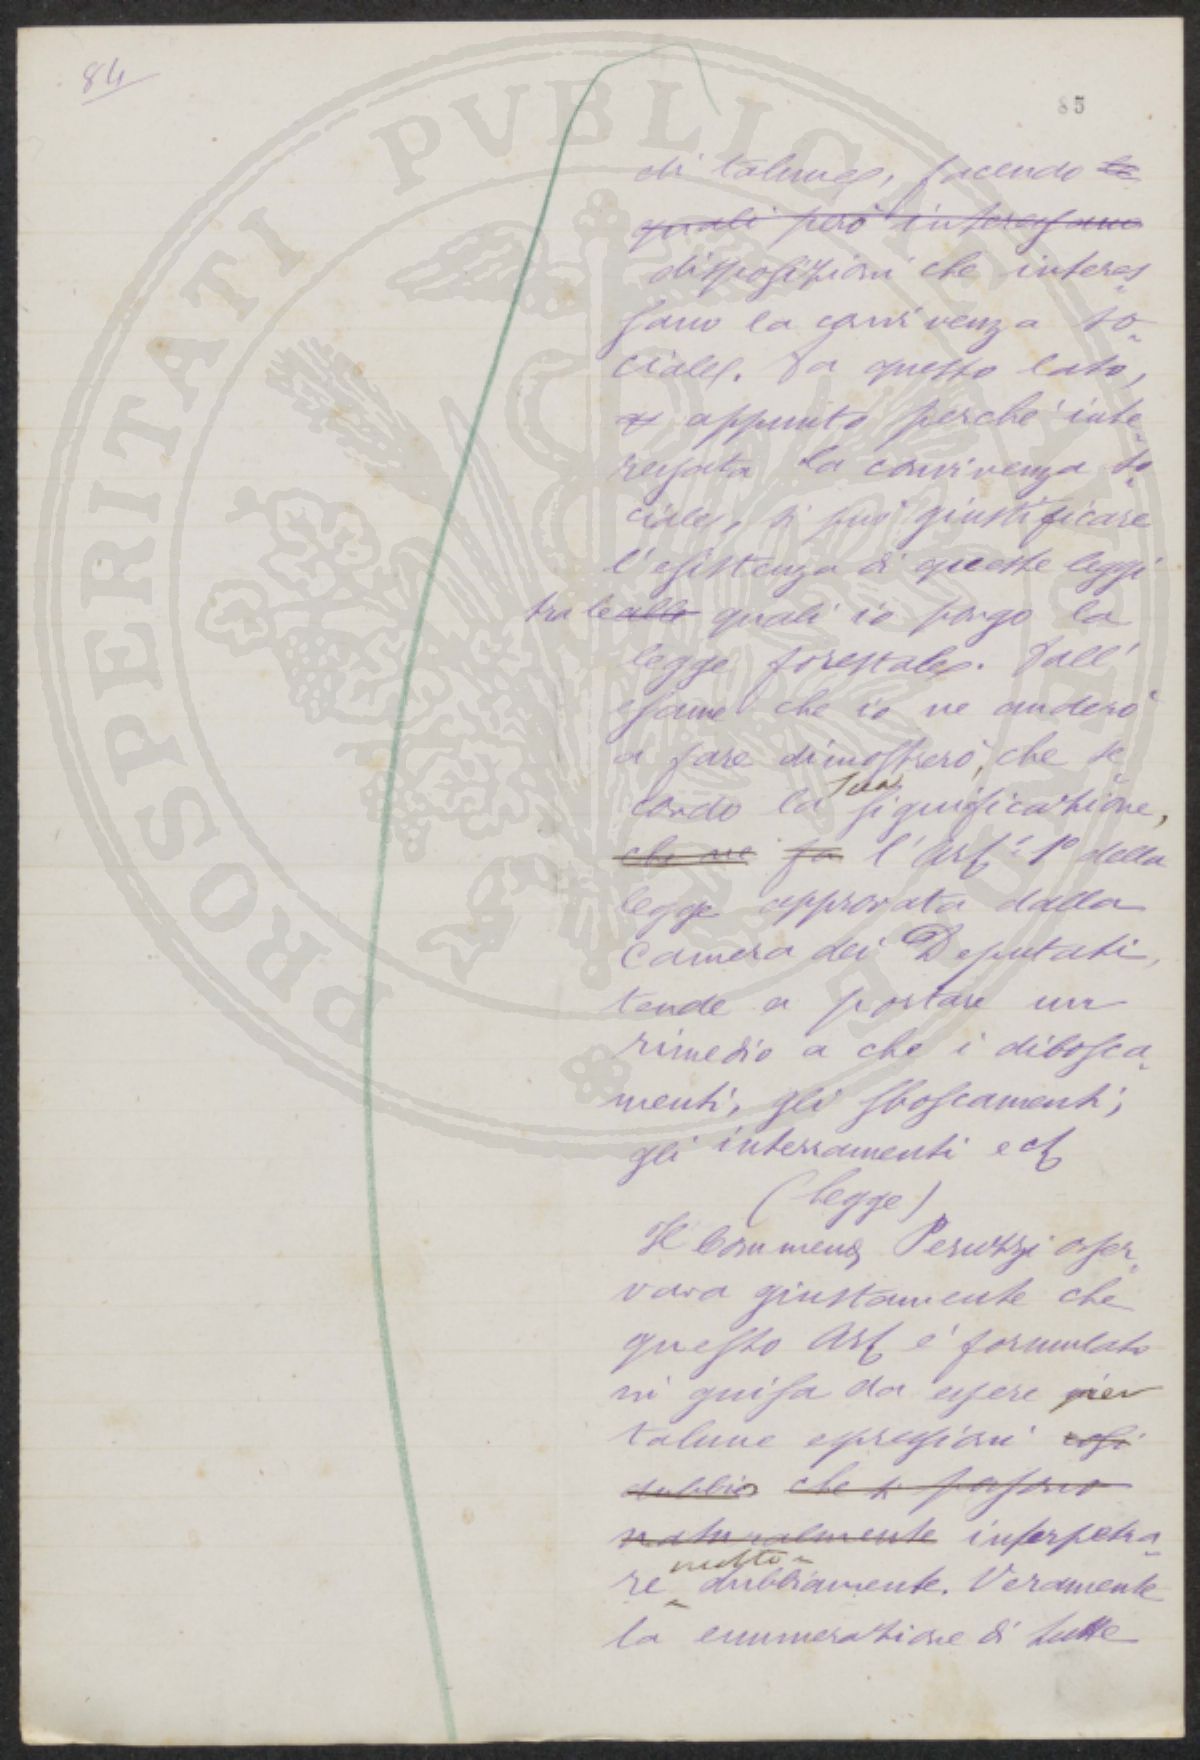 84
85
di talune, facendo le
quali però interessano
disposizioni che interes
sano la convivenza so
ciale. Da questo lato,
e appunto perchè inte
ressata la convivenza so
ciale, si può giustificare
l'esistenza di queste leggi
tra le alle quali io pongo la
legge forestale. Dall'
esame che io ne anderò
a fare dimostrerò, che se
condo la sua significazione,
che ne fa l'Art.° 1° della
legge approvata dalla
Camera dei Deputati,
tende a portare un
rimedio a che i disbosca
menti, gli sboscamenti,
gli interramenti ect
(legge)
Il Commend Peruzzi osser
vava giustamente che
questo Art è formulato
in guisa da essere per
talune espressioni così
dubbio che si possono
naturalmente interpetra
re molto dubbiamente. Veramente
la enumerazione di tutte
PROSPERITATI PVBLICAE